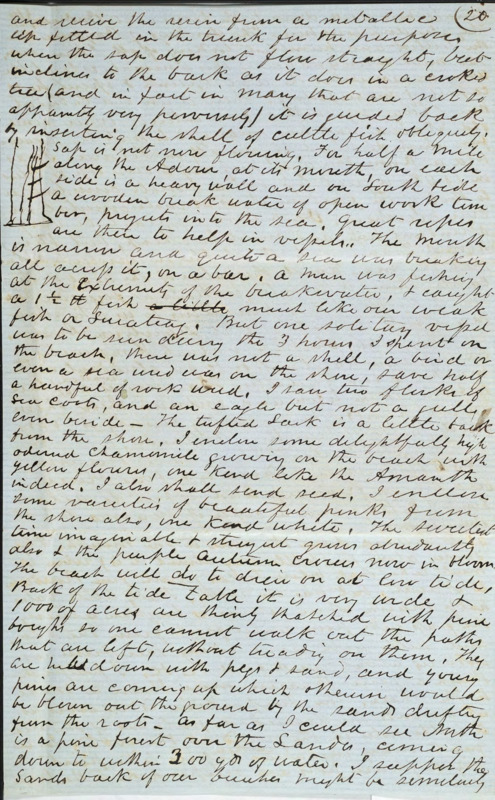 20
and receive the resin from a metallic
cup fitted in the trunk for the purpose,
when the sap does not flow straight, but
inclines to the bark as it does in a crooked
tree (and in fact in many that are not so
apparently very perversely) it is guided back
by inserting the shell of cuttle fish obliquely.
Sap is not now flowing. For half a mile
along the Adour, at its mouth, on each
side is a heavy wall and on South side
a wooden break water of open work tim
ber, projects into the sea. Great ropes
are then to help in vessels. The mouth
is narrow and quite a sea was breaking
all across it, on a bar. a man was fishing
at the extremity of the breakwater, & caught
a 1½ ft fish much like our weak
fish or Squeteag. But one solitary vessel
was to be seen during the 3 hours I spent on
the beach, there was not a shell, a bird or
even a sea weed was on the shore, save half
a handful of rock weed. I saw two flocks of
sea coots, and an eagle but not a gull
even beside – The tufted Lark is a little back
from the shore. I enclose some delightfully high
odored chamomile growing on the beach with
yellow flowers, one kind like the Amaranth
indeed. I also shall send seed. I enclose
some varieties of beautiful pinks from
the shore also, one kind white. The sweetest
time imaginable & strongest grows abundantly
also & the purple Autumn crocus now in bloom
The beach will do to drive on at low tide,
Back of the tide table it is very wide &
1000 of acres are thinly thatched with pine
boughs so one cannot walk out the paths
that are left, without treading on them. They
are held down with pegs & sand, and young
pines are coming up which otherwise would
be blown out the ground by the sands drifting
from the roots – as far as I could see North
is a pine forest over the Landes, coming
down to within 300 yds of water. I suppose the
Sands back of our beaches might be similarly